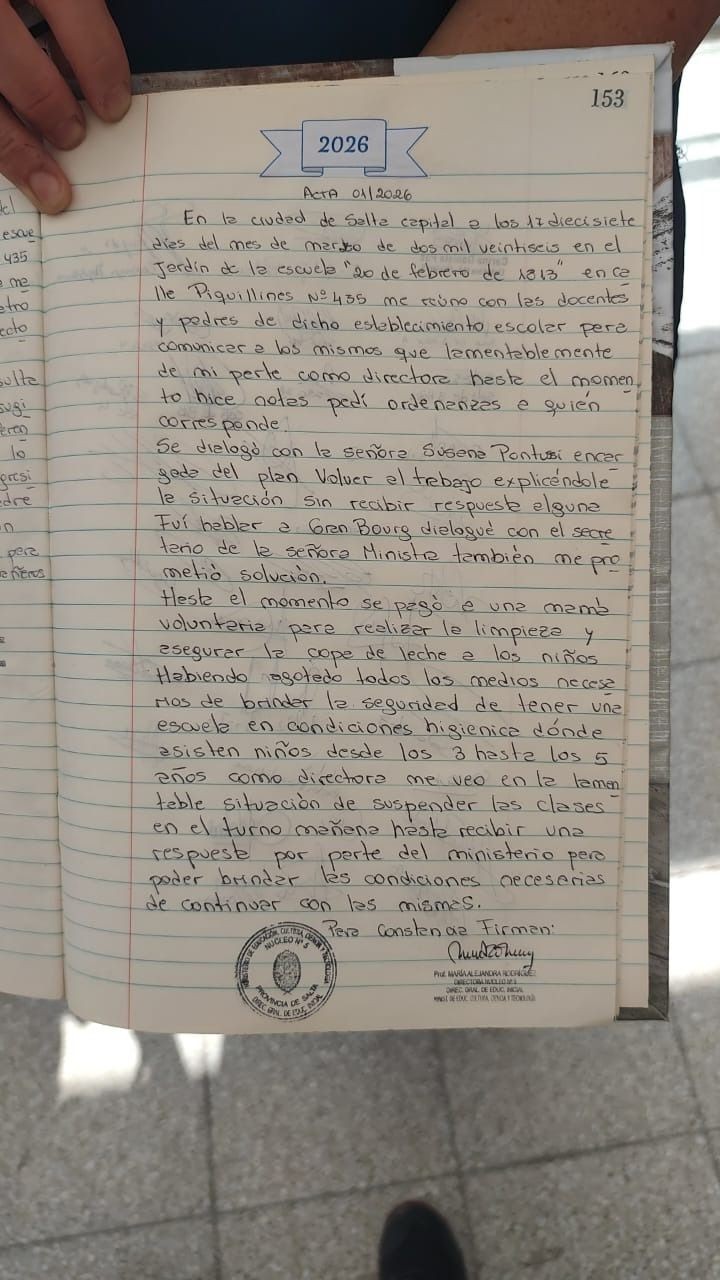 153
2026
ACTA 01/2026
En la ciudad de Salta capital a los 17 diecisiete
días del mes de marzo de dos mil veintiseis en el
Jardín de la escuela "20 de febrero de 1813" en ca
lle Piquillines Nº 435 me reúno con las docentes
y padres de dicho establecimiento escolar para
comunicar a los mismos que lamentablemente
de mi parte como directora hasta el momen
to hice notas pedí ordenanzas a quién
corresponde.
Se dialogó con la señora Susana Pontusi encar
gada del plan Volver al trabajo explicándole
la situación sin recibir respuesta alguna
Fuí hablar a Gran Bourg dialogué con el secre
tario de la señora Ministra también me pro
metió solución.
Hasta el momento se pagó a una mamá
voluntaria para realizar la limpieza y
asegurar la copa de leche a los niños
Habiendo agotado todos los medios necesa
rios de brindar la seguridad de tener una
escuela en condiciones higienica dónde
asisten niños desde los 3 hasta los 5
años como directora me veo en la lamen
table situación de suspender las clases
en el turno mañana hasta recibir una
respuesta por parte del ministerio para
poder brindar las condiciones necesarias
de continuar con las mismas.
Para Constancia Firman:
MINISTERIO DE EDUCACIÓN, CULTURA, CIENCIA Y TECNOLOGÍA
NUCLEO Nº 5
PROVINCIA DE SALTA
DIREC. GRAL. DE EDUC. INICIAL
Prof. MARÍA ALEJANDRA RODRIGUEZ
DIRECTORA NUCLEO Nº 5
DIREC. GRAL. DE EDUC. INICIAL
MINIST. DE EDUC. CULTURA, CIENCIA Y TECNOLOGÍA